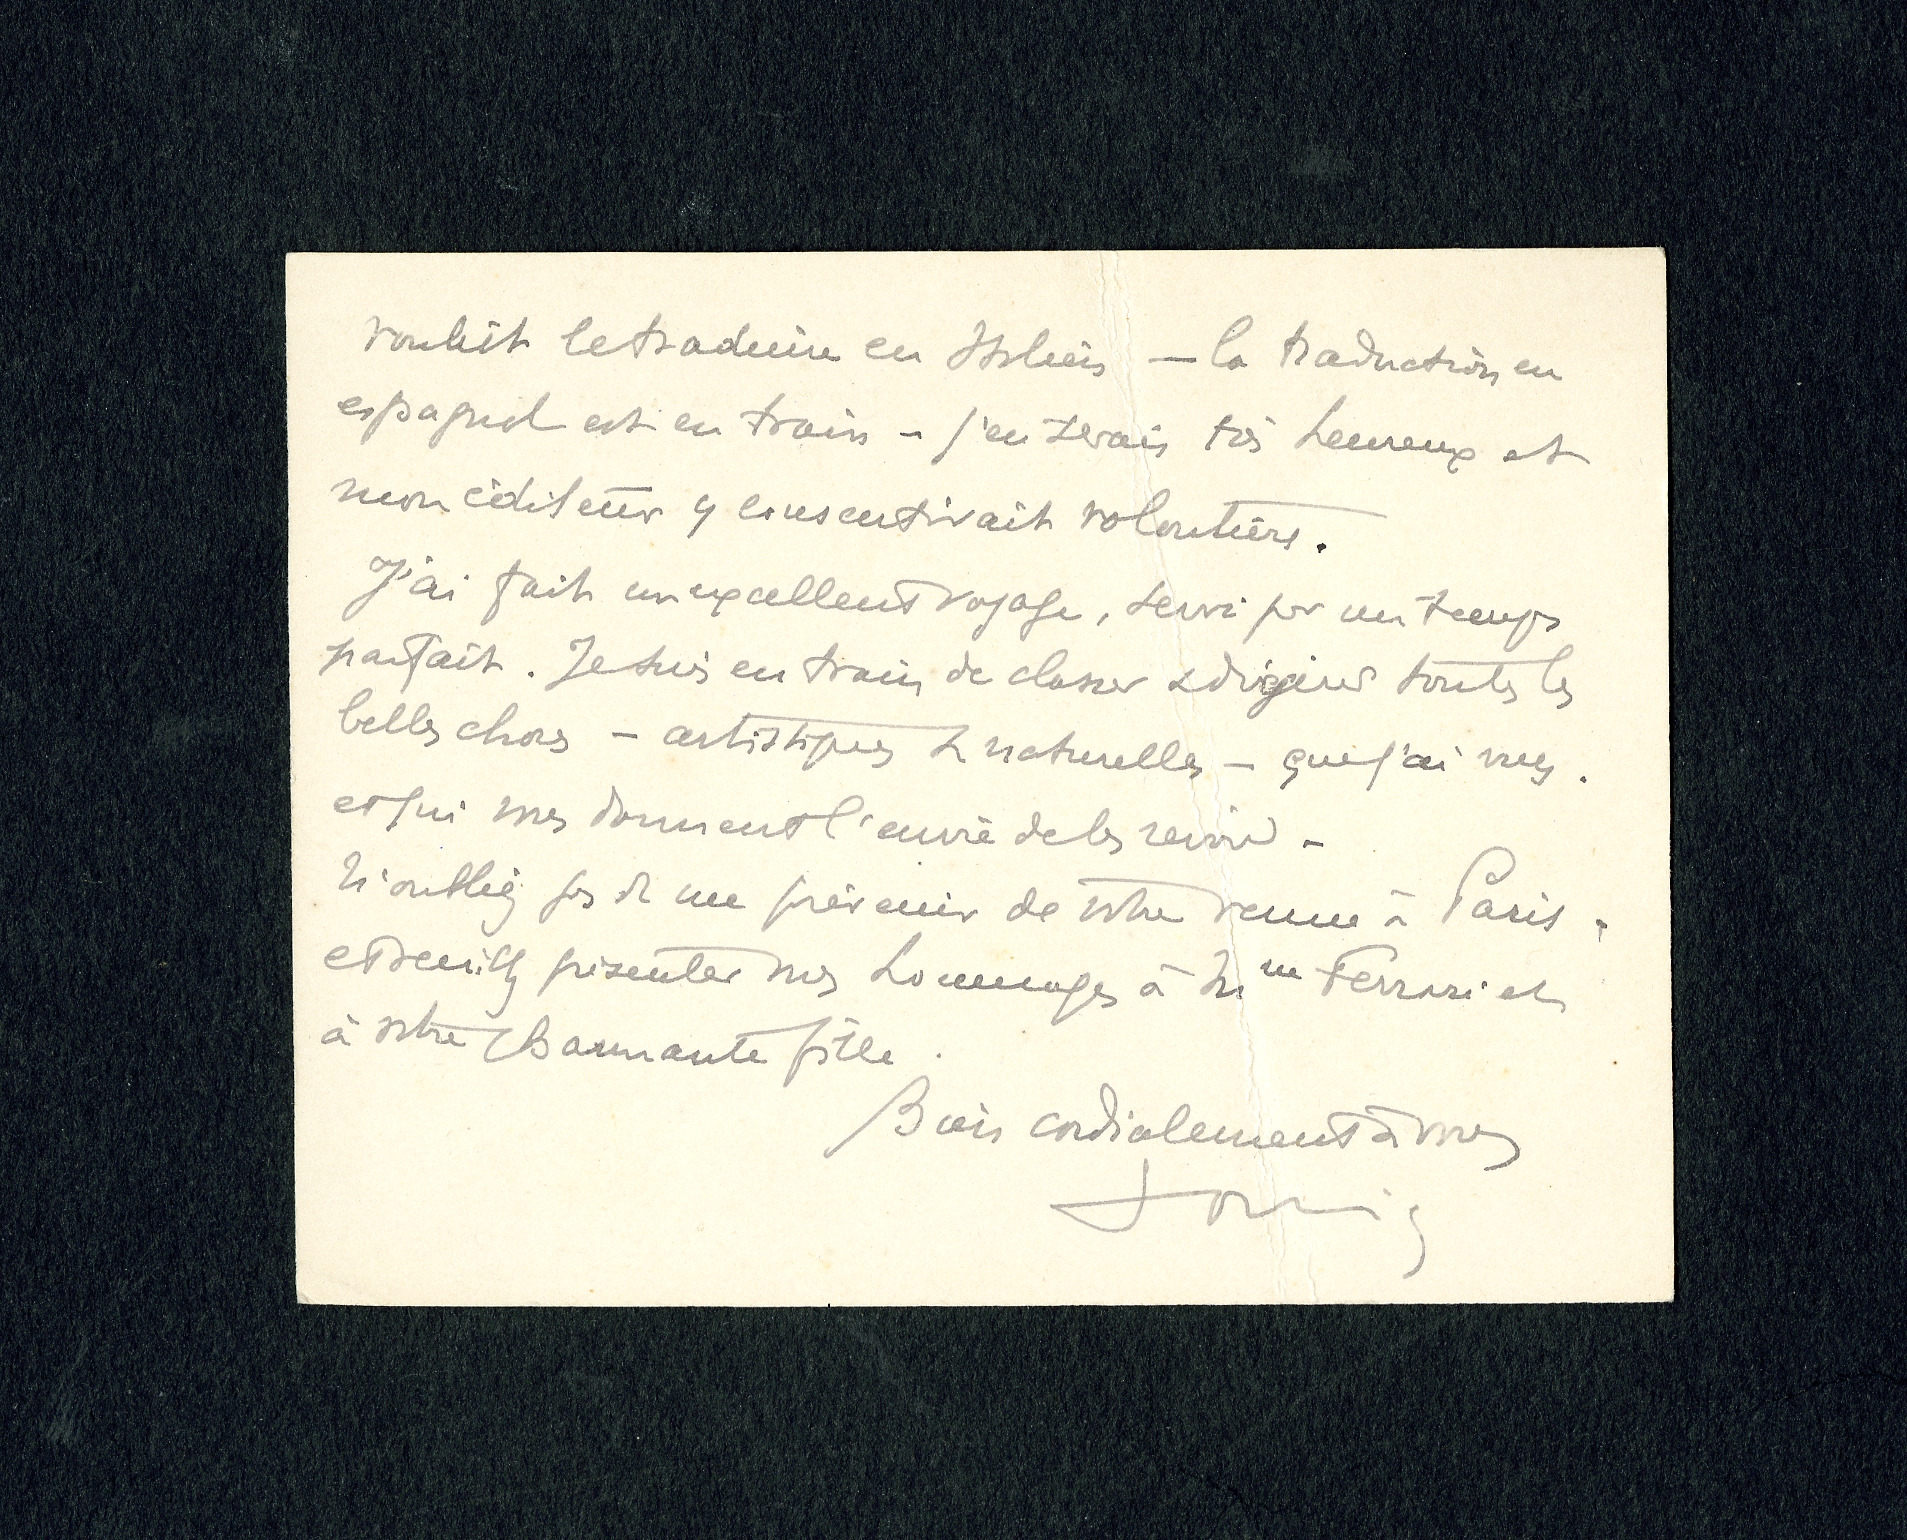 voulait le traduire en Italien — la traduction en
espagnol est en train - j'en serais très heureux et
mon éditeur y consentirait volontiers.
J'ai fait un excellent voyage, servi par un temps
parfait. Je suis en train de classer & digérer toutes les
belles choses - artistiques & naturelles - que j'ai vues.
et qui me donnent l'envie de les revoir -
N'oubliez pas de me prévenir de votre venue à Paris.
et veuillez présenter mes hommages à Mme Ferrari et
à votre charmante fille.
Bien cordialement à vous